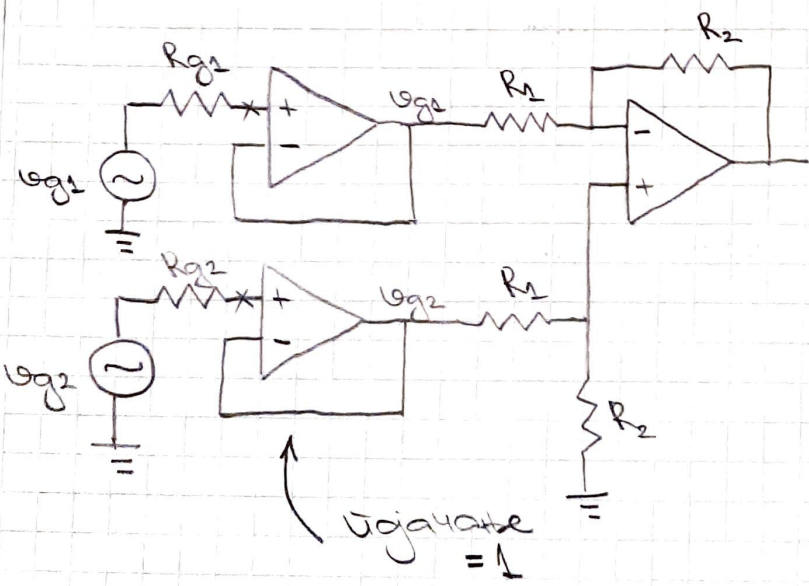 Rg1
R2
vg1
R1
+
-
-
+
vg1
Rg2
vg2
R1
+
-
vg2
R2
појачање
= 1